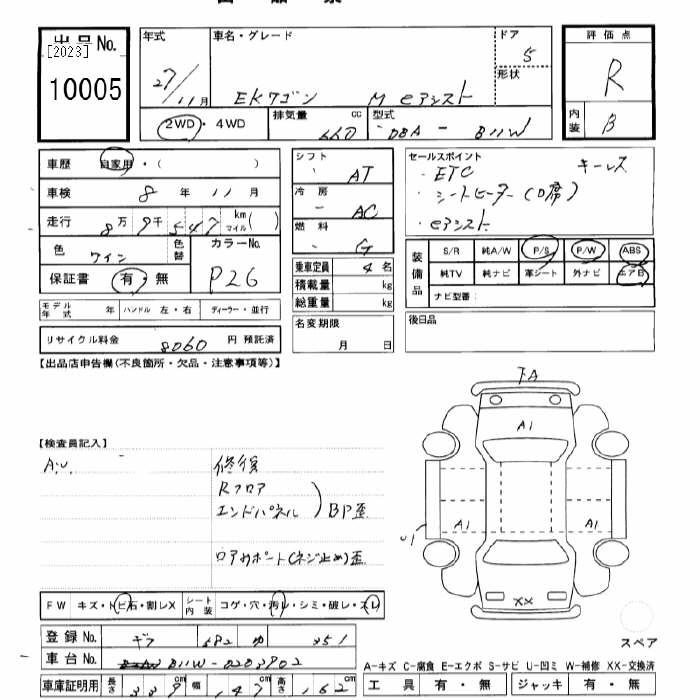 出品No.
[2023]
10005
年式 27/11月
車名・グレード EKワゴン M eアシスト
ドア 5
形状
評価点 R
内装 B
2WD・4WD
排気量 660 cc
型式 DBA-B11W
車歴 自家用・( )
車検 8年11月
走行 8万9千547 km マイル( )
色 ワイン 色替
カラーNo. P26
保証書 有・無
モデル年式 年 ハンドル 左・右 ディーラー・並行
リサイクル料金 8060 円 預託済
シフト AT
冷房 AC
燃料 G
乗車定員 4名
積載量 kg
総重量 kg
名変期限 月 日
セールスポイント キーレス
・ETC
・シートヒーター(D席)
・eアシスト
装備品 S/R 純A/W P/S P/W ABS
純TV 純ナビ 革シート 外ナビ エアB
ナビ型番:
後日品
【出品店申告欄(不良箇所・欠品・注意事項等)】
【検査員記入】
A.U. 修復
Rフロア
エンドパネル ) BP歪
ロアサポート(ネジ止め)歪
FW キズ・トビ石・割レX
シート内装 コゲ・穴・汚レ・シミ・破レ・スレ
登録No.
車台No. B11W-0203902
車庫証明用 長さ 339cm 幅 147cm 高さ 162cm
A1
A1
A1
U1
XX
スペア
A-キズ C-腐食 E-エクボ S-サビ U-凹ミ W-補修 XX-交換済
工具 有・無 ジャッキ 有・無